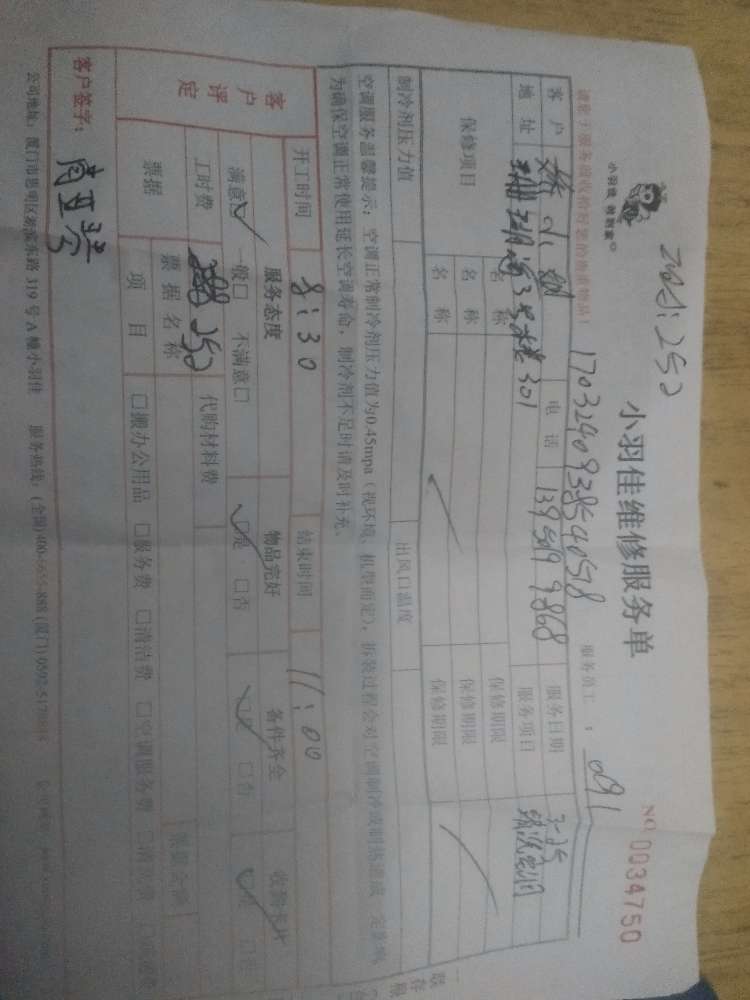 实收:250
小羽佳 教到家
小羽佳维修服务单
NO. 0034750
17032409385405 8
服务员工: 091
请在于服务前收拾好您的贵重物品!
客户 小 电话 139 599 9868 服务日期 3-25
地址 珊瑚海3号楼301 服务项目 清洗空调
保修项目 名称 保修期限
名称 保修期限
名称 保修期限
制冷剂压力值 出风口温度
空调服务温馨提示:空调正常制冷剂压力值为0.45mpa(视环境、机型而定),拆装过程会对空调制冷或制热造成一定影响
为确保空调正常使用延长空调寿命,制冷剂不足时请及时补充。
开工时间 8:30 结束时间 11:00
客户评定
服务态度 物品完好 备件齐全 收费卡片
满意☑ 一般□ 不满意□ ☑是 □否 ☑是 □否
工时费 250 代购材料费
票据 票据名称 票据金额
项目 □搬办公用品 □服务费 □清洁费 □空调服务费
客户签字:
公司地址:厦门市思明区 东路319号A幢小羽佳 服务热线:(全国)400-6655-888 (厦门)0592-5178